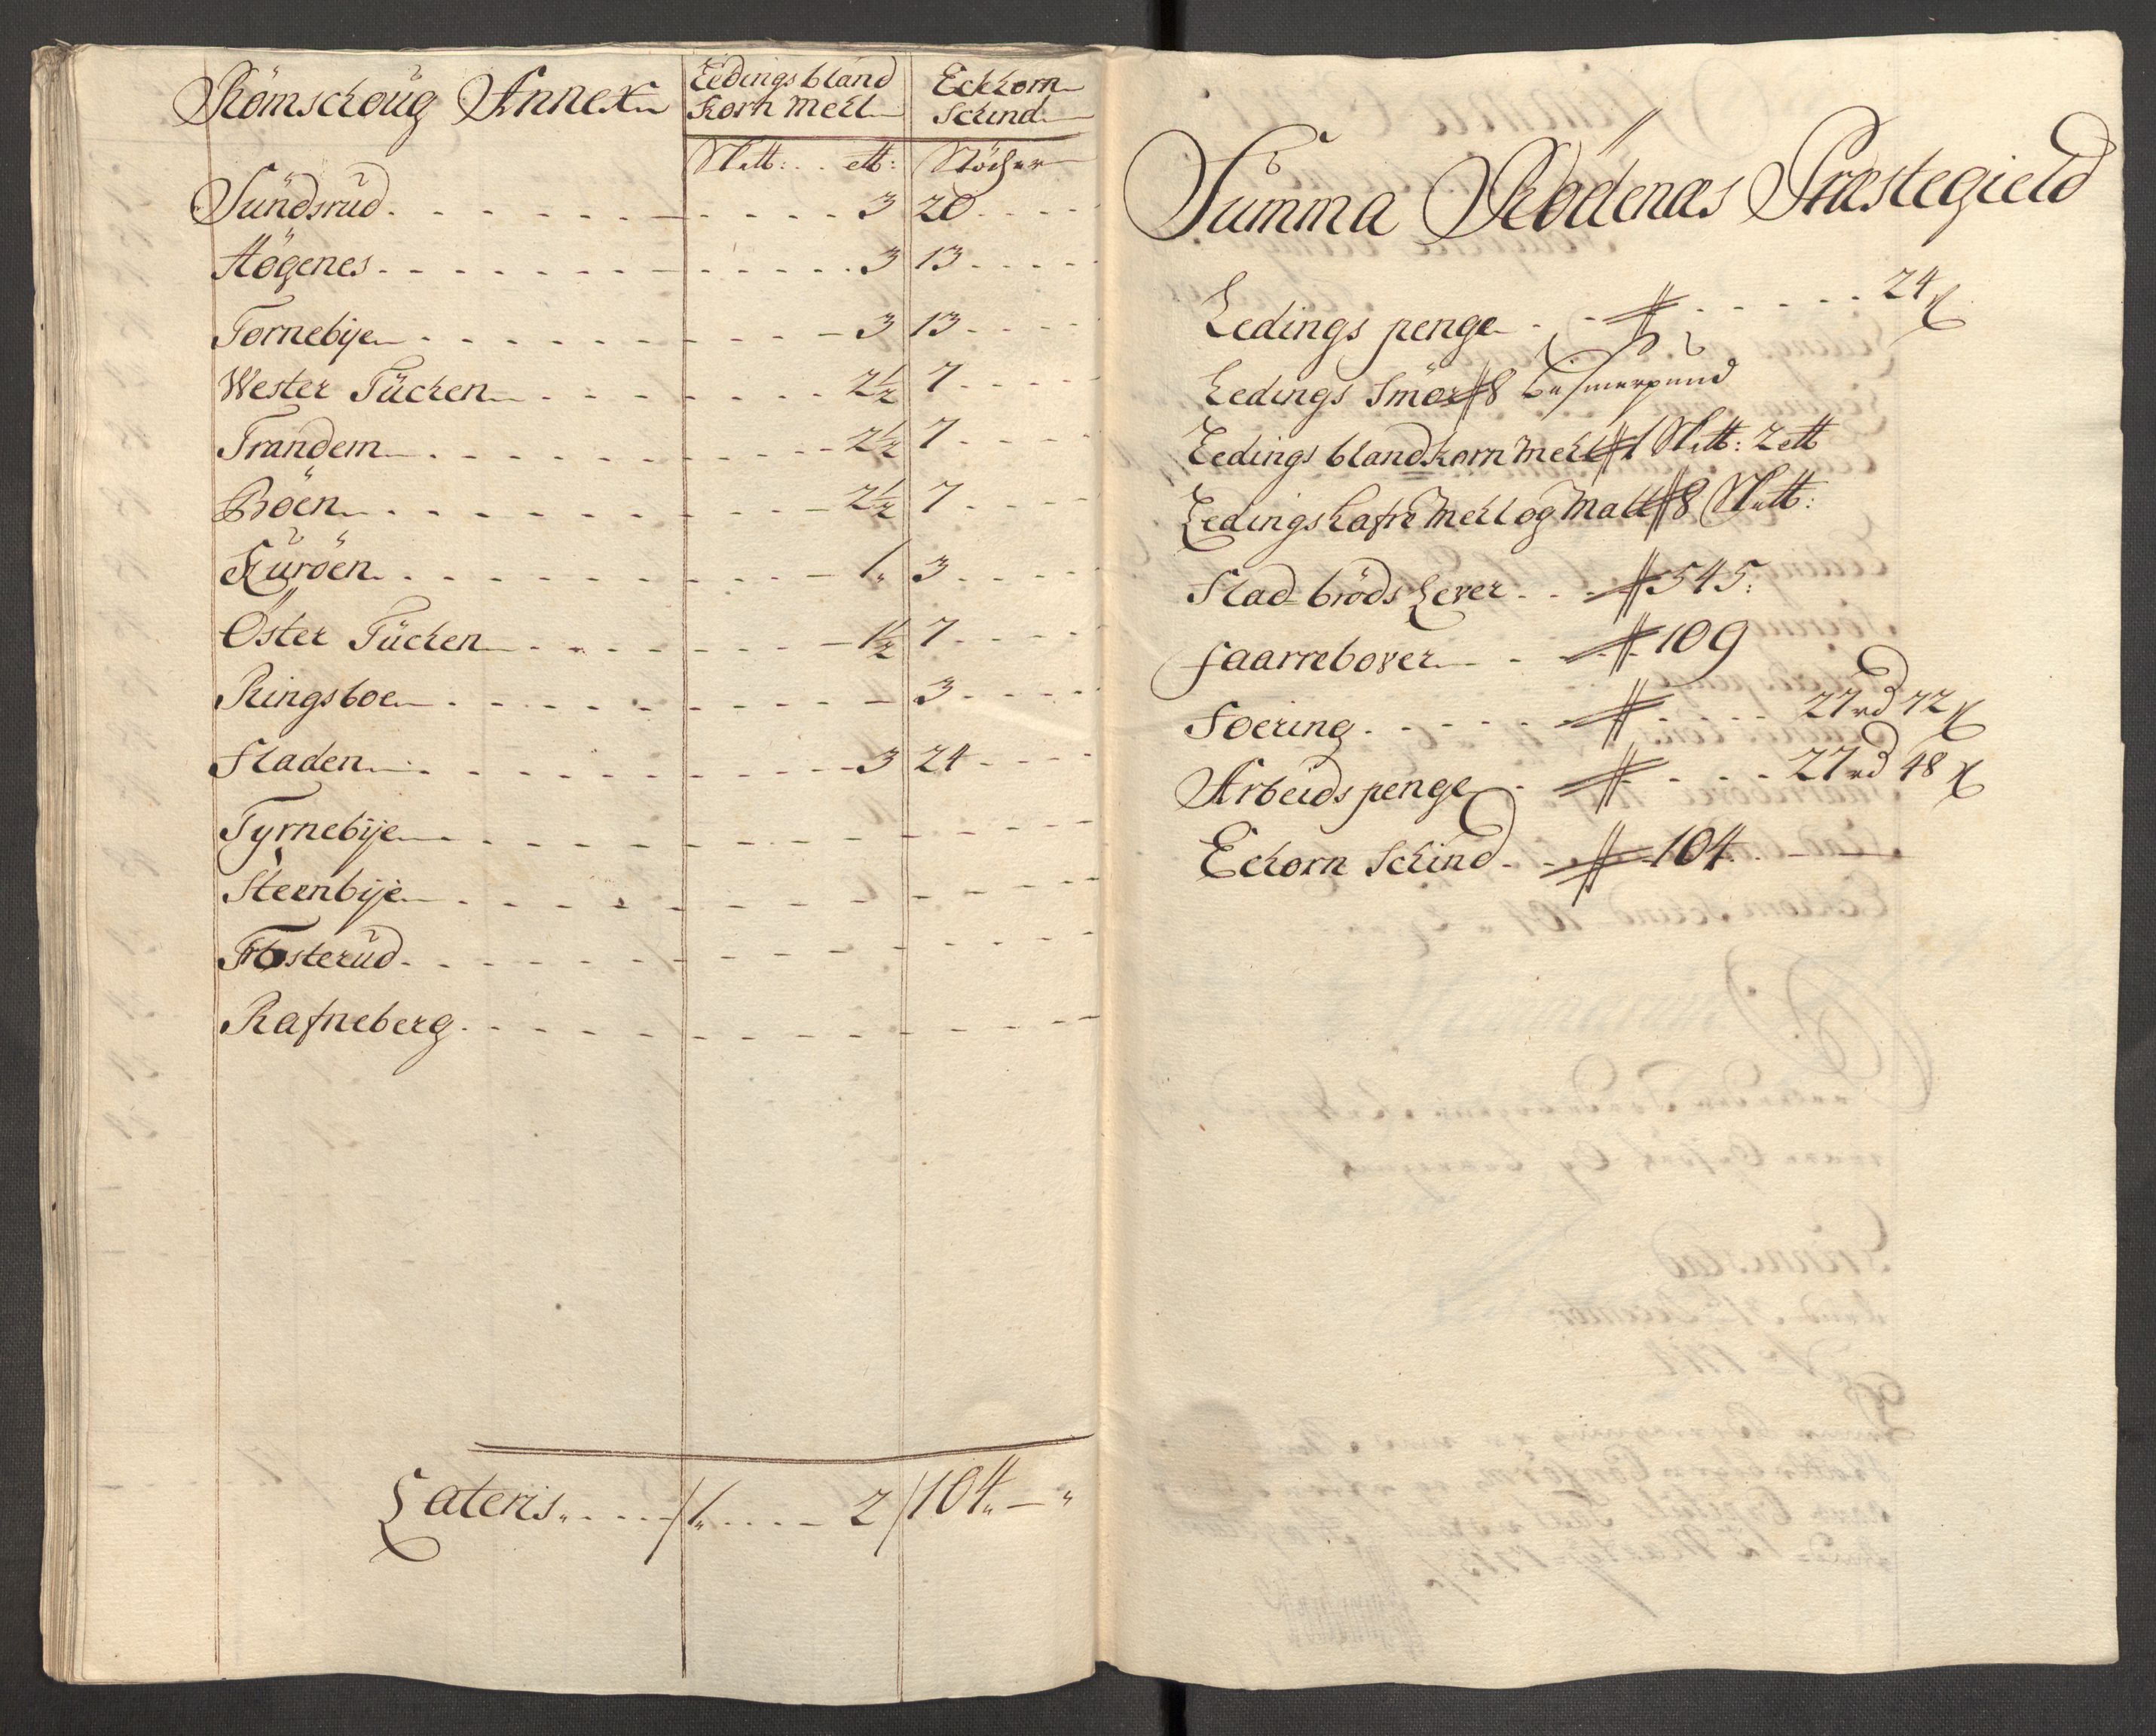 Römschoug Annex
Ledings bland Korn Meel
Eckhorn Schind
Sk℔: . . ℔: Stöcher
Sundsrud . . . 3 20
Högenes . . . 3 13
Tornebije . . . 3 13
Wester Tüchen . . . 2½ 7
Trandem . . . 2½ 7
Bröen . . . 2½ 7
Kuröen . . . 1 3
Öster Tüchen . . . 1½ 7
Ringsboe . . . — 3
Staden . . . 3 24
Tyrnebije . . .
Steenbije . . .
Tosterud . . .
Rafneberg . . .
Lateris . . . 1 . . . 2 104 —
Summa Rödenæs Præstegield
Ledings penge . . . 24
Ledings Smör 8 bismerpund
Ledings bland korn Mehl 1 Sk℔: 2 ℔
Ledings hafre Mehl og Malt 8 Sk℔:
Stad bröds Lever . . 545:
faarrebover . . 109
Foering . . . 27 rd 72
Arbeids penge . . . 27 rd 48
Echorn Schind . . 104